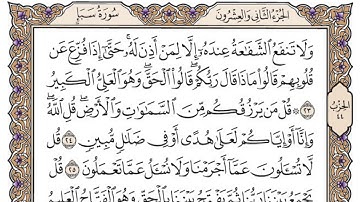 الجزء الثاني والعشرون
سورة سبإ
وَلَا تَنفَعُ الشَّفَٰعَةُ عِندَهُۥٓ إِلَّا لِمَنْ أَذِنَ لَهُۥ ۚ حَتَّىٰٓ إِذَا فُزِّعَ عَن
قُلُوبِهِمْ قَالُوا۟ مَاذَا قَالَ رَبُّكُمْ ۖ قَالُوا۟ الْحَقَّ ۖ وَهُوَ الْعَلِىُّ الْكَبِيرُ
٢٣ ۞ قُلْ مَن يَرْزُقُكُم مِّنَ السَّمَٰوَٰتِ وَالْأَرْضِ ۖ قُلِ اللَّهُ ۖ
وَإِنَّآ أَوْ إِيَّاكُمْ لَعَلَىٰ هُدًى أَوْ فِى ضَلَٰلٍ مُّبِينٍ ٢٤ قُل
لَّا تُسْـَٔلُونَ عَمَّآ أَجْرَمْنَا وَلَا نُسْـَٔلُ عَمَّا تَعْمَلُونَ ٢٥ قُلْ
يَجْمَعُ بَيْنَنَا رَبُّنَا ثُمَّ يَفْتَحُ بَيْنَنَا بِالْحَقِّ وَهُوَ الْفَتَّاحُ الْعَلِيمُ
الحزب
٤٤